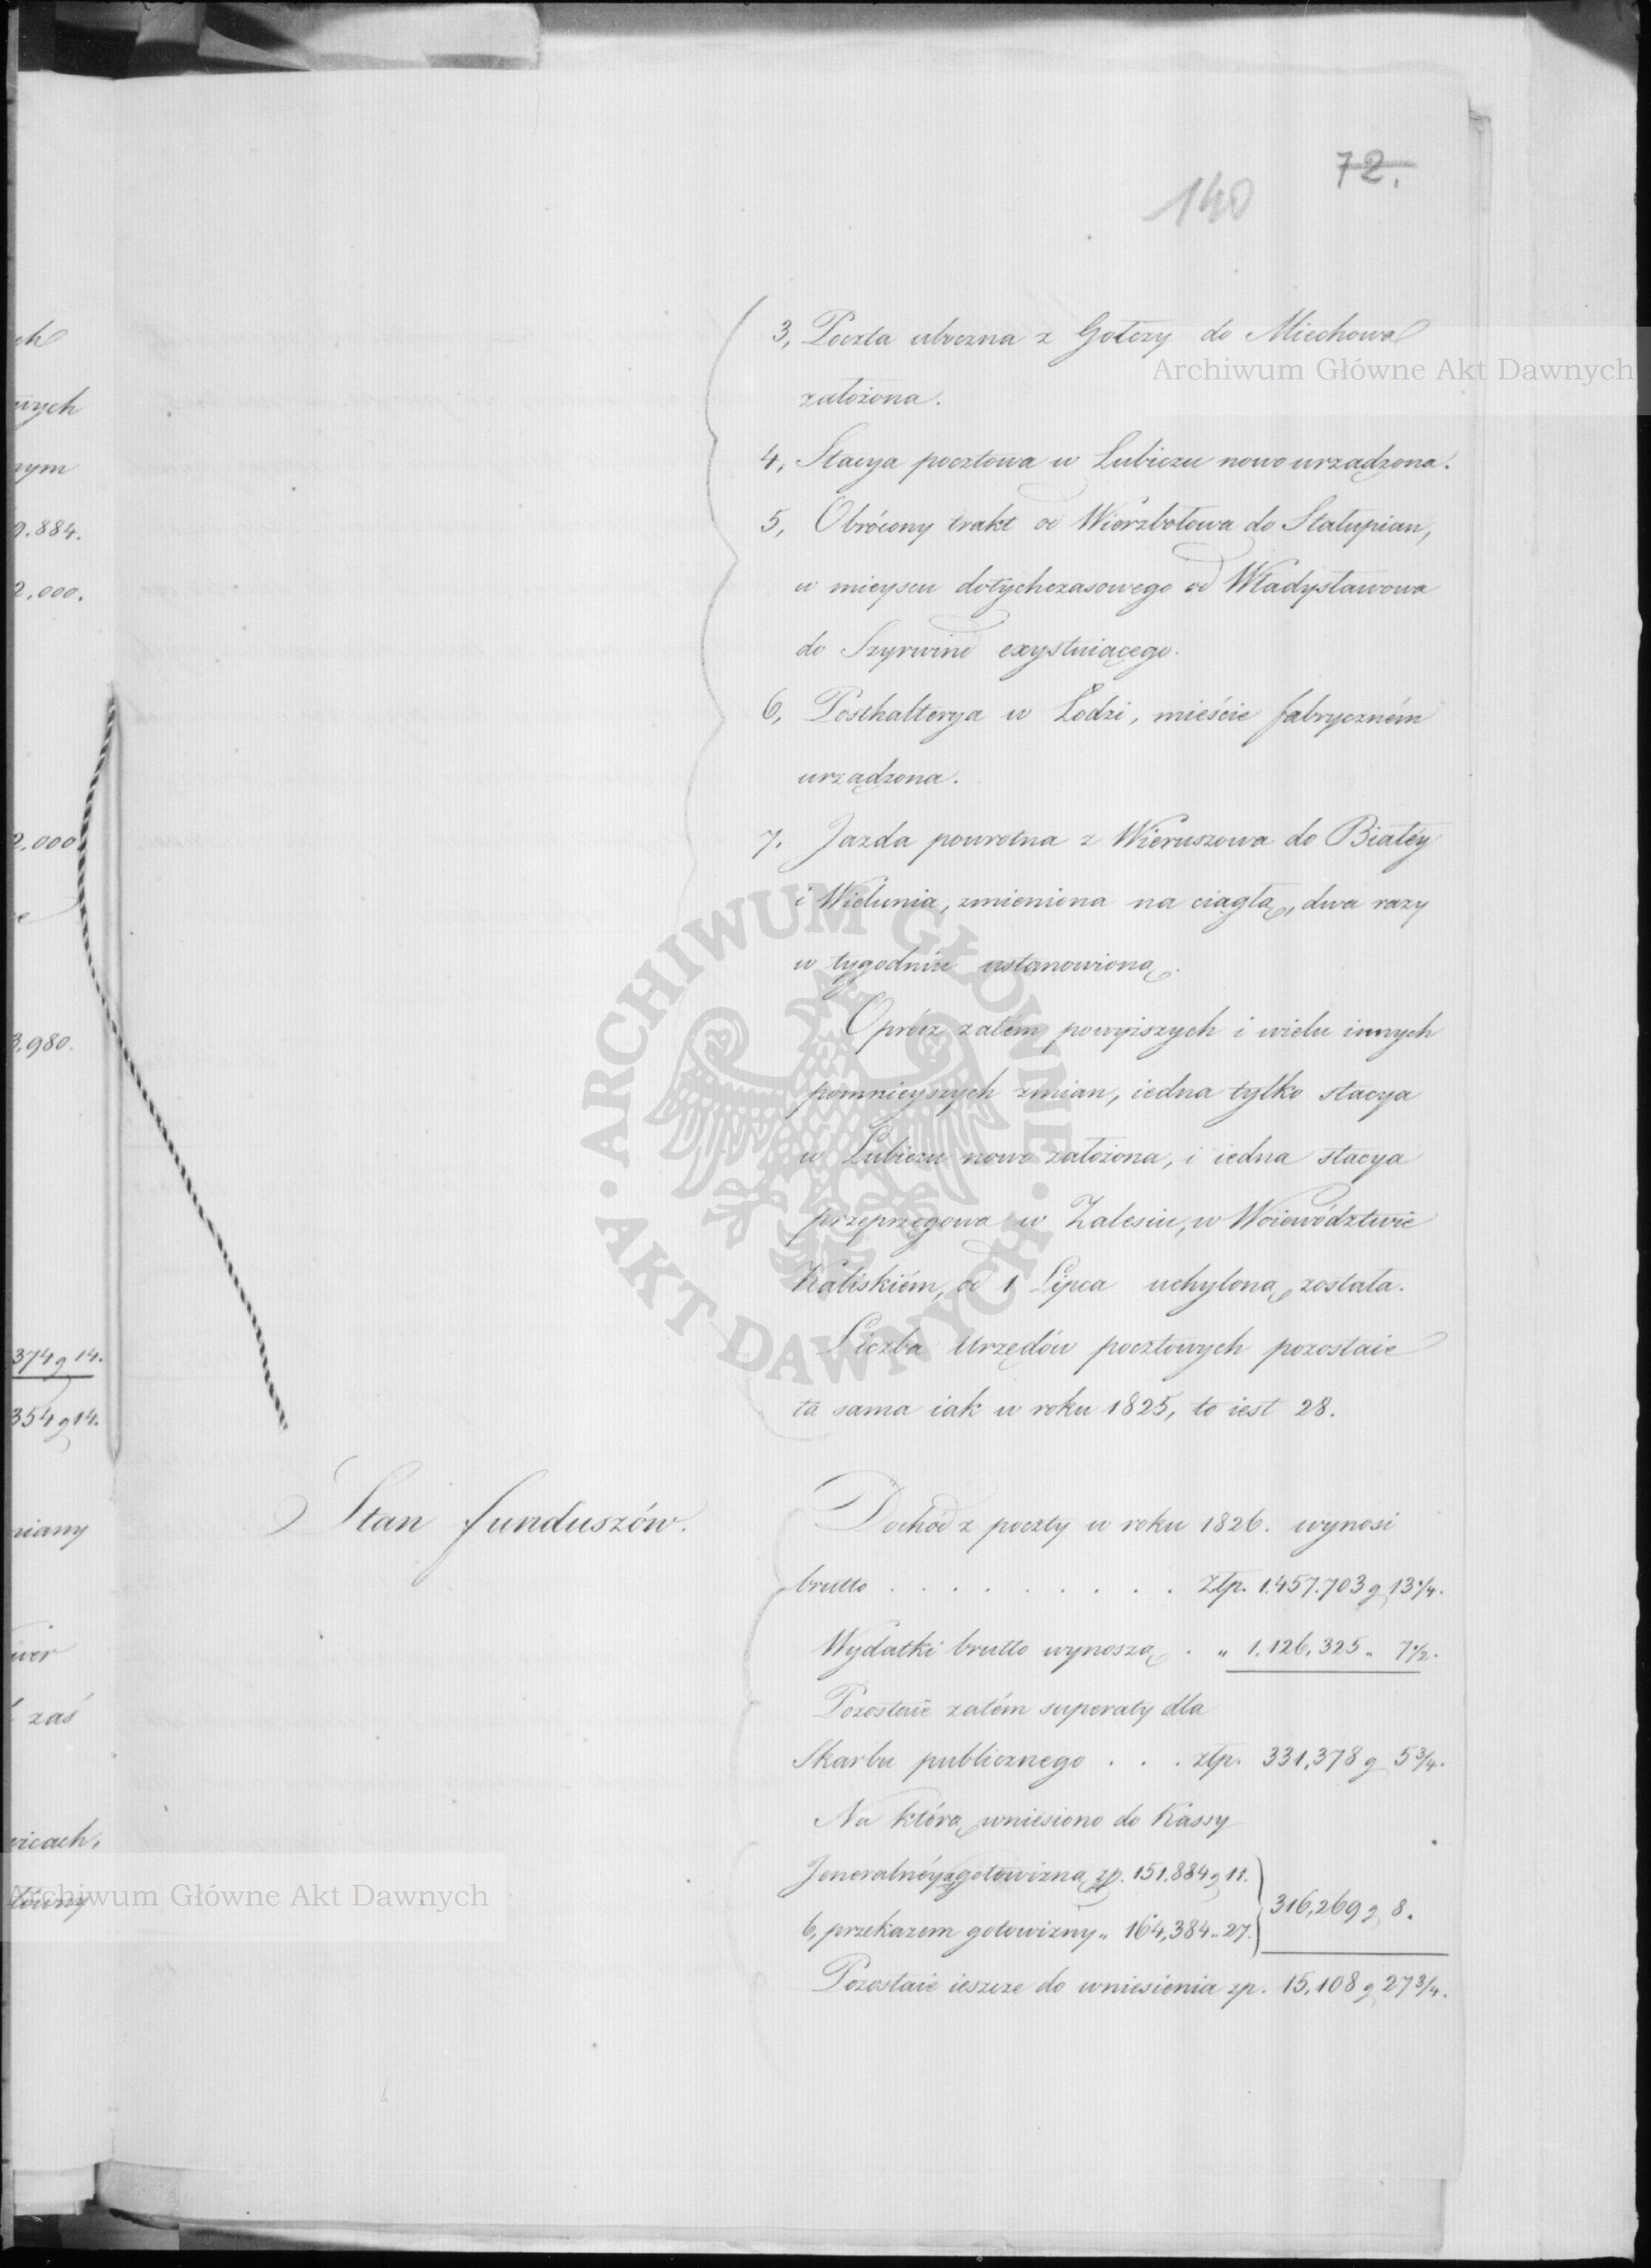 72.
140
3, Poczta uboczna z Gołczy do Miechowa
założona.
4, Stacya pocztowa w Lubiczu nowo urządzona.
5, Obrócony trakt od Wierzbołowa do Stałupian,
w mieyscu dotychczasowego od Władysławowa
do Szyrwind exystuiącego.
6, Poszthalterya w Łodzi, mieście fabryczném
urządzona.
7. Jazda powrotna z Wieruszowa do Białéy
i Wielunia, zmieniona na ciągłą, dwa razy
w tygodniu ustanowioną.
Oprócz zatem powyższych i wielu innych
pomnieyszych zmian, iedna tylko stacya
w Lubiczu nowo założona, i iedna stacya
przeprzęgowa w Zalesiu, w Woiewództwie
Kaliskiém, od 1 Lipca uchyloną została.
Liczba Urzędów pocztowych pozostaie
ta sama iak w roku 1825, to iest 28.
Stan funduszów.
Dochód z poczty w roku 1826. wynosi
brutto . . . . . . . . . Złp. 1.457.703 g 13 1/4.
Wydatki brutto wynoszą . „ 1.126,325 „ 7 1/2.
Pozostaie zatém superaty dla
Skarbu publicznego . . . złp. 331,378 g 5 3/4.
Na którą wniesiono do Kassy
Jeneralnéy a, gotowizną zp. 151,884 g 11.
b, przekazem gotowizny „ 164,384 „ 27. } 316,269 g 8.
Pozostaie ieszcze do wniesienia zp. 15,108 g 27 3/4.
ch
wych
nym
9.884.
2,000.
2,000
3,980.
374 g 14.
354 g 14.
miany
zaś
wicach,
Archiwum Główne Akt Dawnych
Archiwum Główne Akt Dawnych
ARCHIWUM GŁÓWNE · AKT DAWNYCH ·